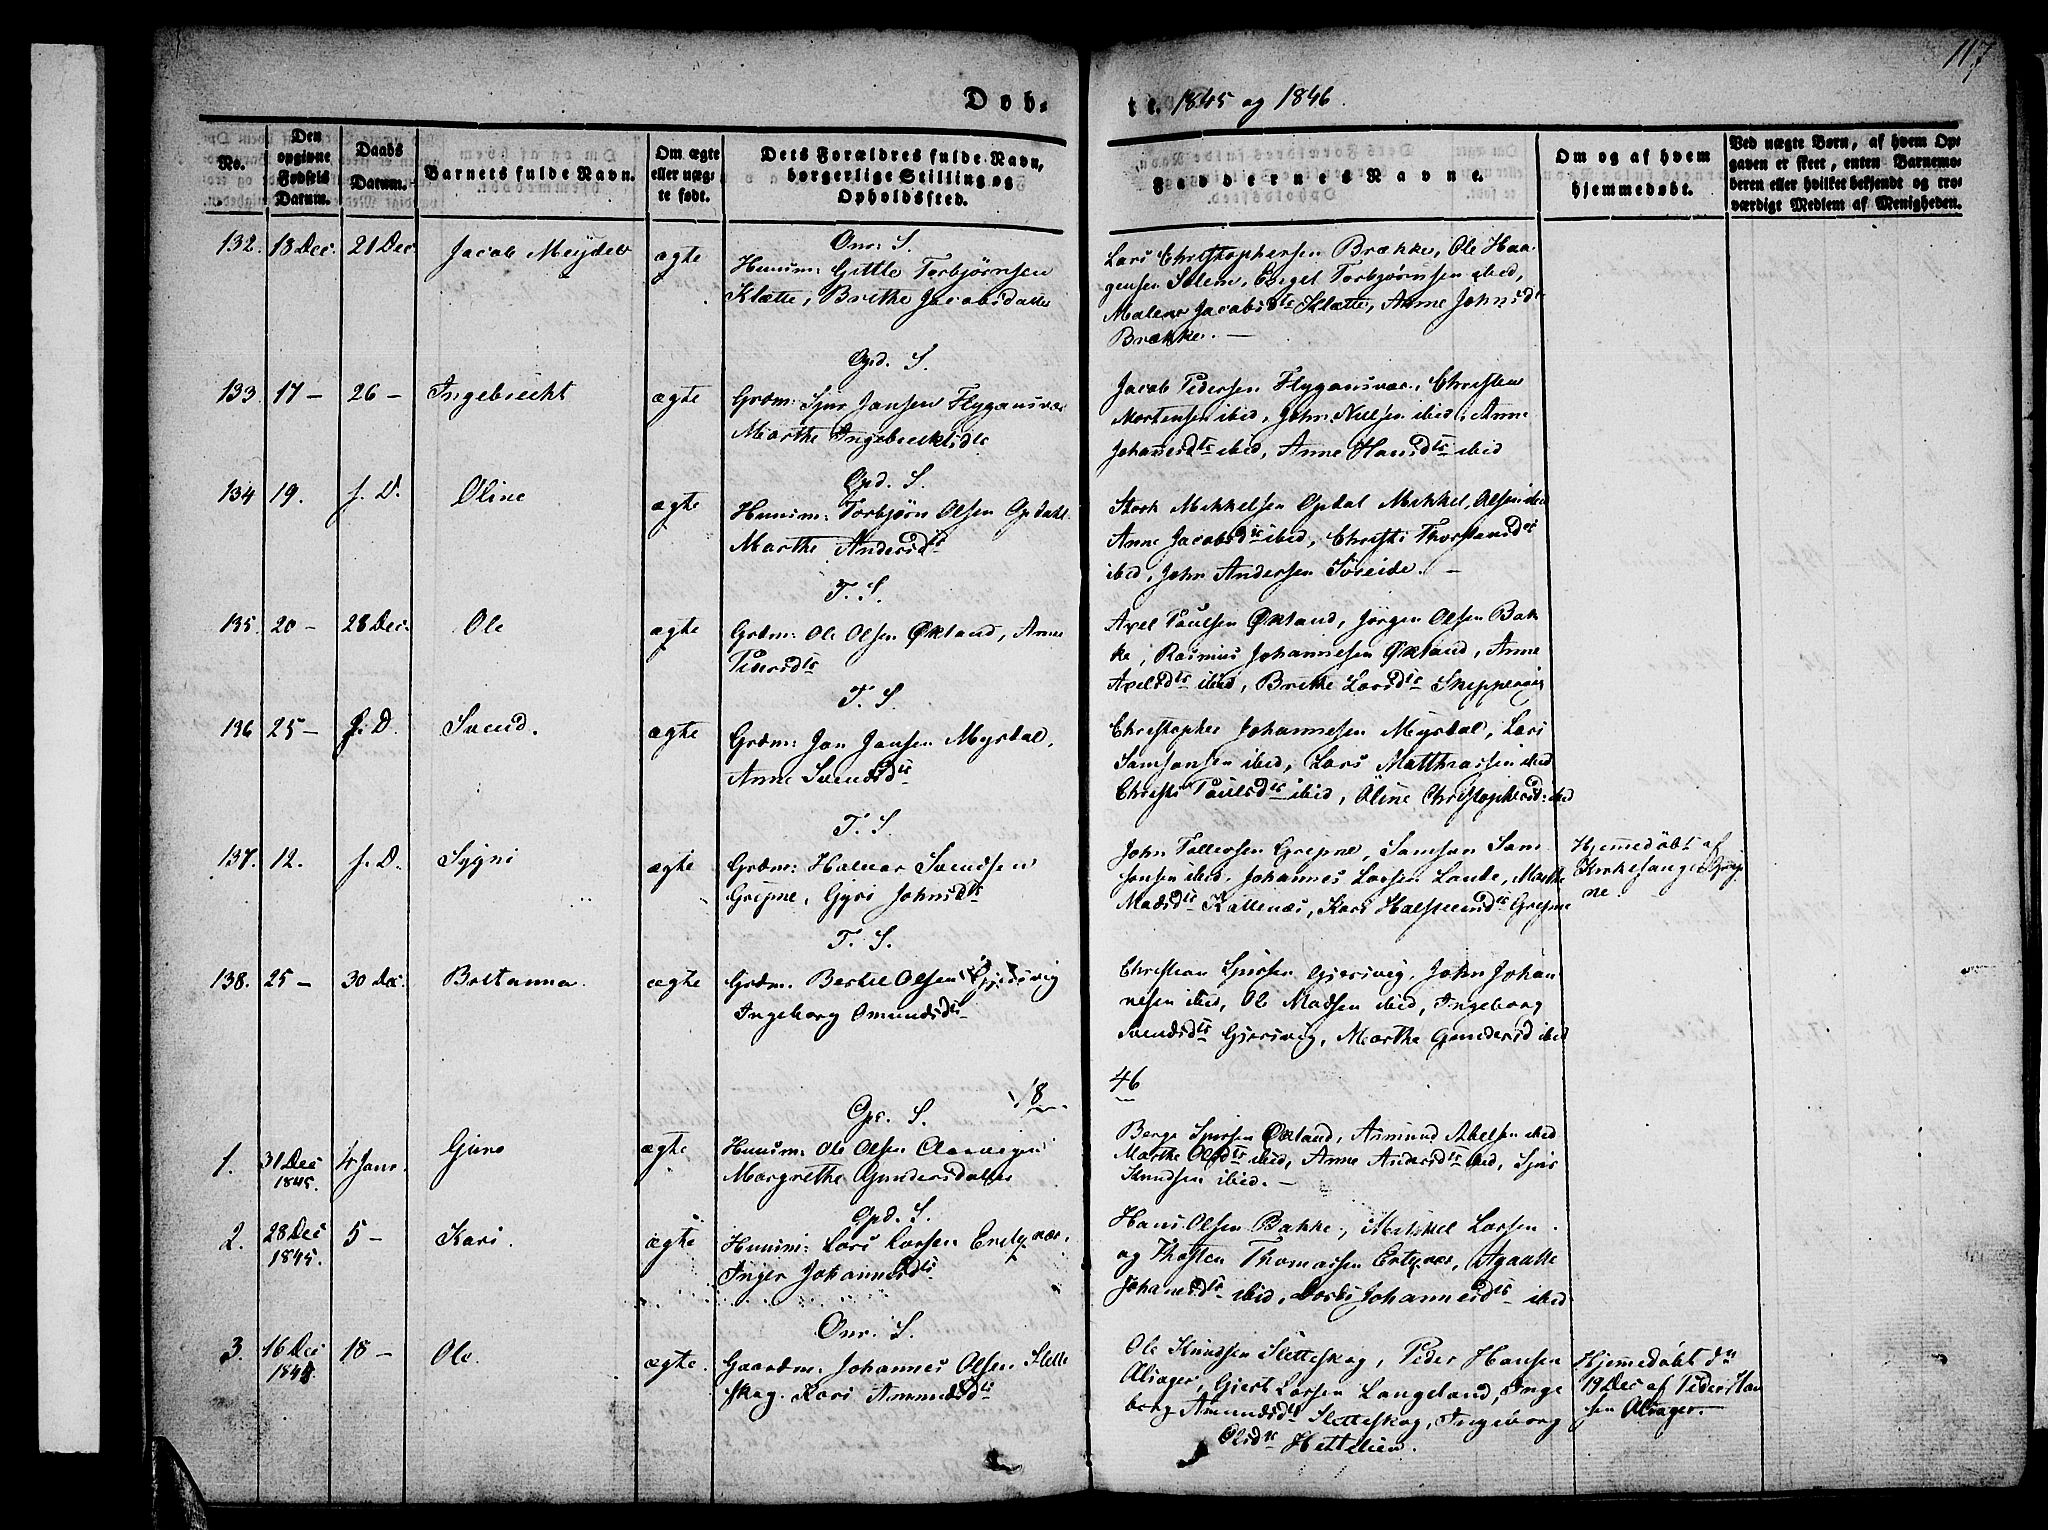 117
Døb- te. 1845 og 1846.
No. Den opgivne Fødsels Datum. Daabs Datum. Barnets fulde Navn. Om ægte eller uægte født. Dets Forældres fulde Navn, borgerlige Stilling og Opholdssted. Faddernes Navne. Om og af hvem hjemmedøbt. Ved uægte Børn, af hvem Opgaven er skeet, enten Barnemoderen eller hvilket bekjendt og troværdigt Medlem af Menigheden.
Onr. S.
132. 18 Dec. 21 Dec Jacob Meydel ægte
Huusm: Gitle Torbjørnsen
Klætte, Brithe Jacobsdatter
Lars Christophersen Brække, Ole Haa-
gensen Solem, Engel Torbjørnsen ibid,
Malene Jacobsdtr Klætte, Anne Johnsdtr
Brække. —
Opd. S.
133. 17 — 26 — Ingebrecht ægte
Grdm: Sjur Jansen Flygansvær
Marthe Ingebrechtsdtr
Jacob Pedersen Flygansvær, Christen
Mortensen ibid, John Nielsen ibid, Anne
Johannesdtr ibid, Anne Hansdtr ibid
Opd. S.
134 19. s. D. Oline ægte
Huusm: Torbjørn Olsen Opdahl
Marthe Andersdtr
Stork Mikkelsen Opdal Mikkel Olsen ibid
Anne Jacobsdtr ibid, Christi Thorstensdtr
ibid, John Andersen Søreide. —
T. S.
135. 20 — 28 Dec. Ole ægte
Grdm: Ole Olsen Øxland, Anne
Pedersdtr
Axel Paulsen Øxland, Jørgen Olsen Bak-
ke, Rasmus Johannesen Øxland, Anne
Axelsdtr ibid, Brithe Larsdtr Skippervig
T. S.
136 25 — s. D. Svend. ægte
Grdm: Jan Jansen Mysdal,
Anne Svendsdtr
Christopher Johannesen Mysdal, Lars
Samsonsen ibid, Lars Matthiassen ibid
Christi Paulsdtr ibid, Oline Christophersd: ibid
T. S.
137. 12. s. D. Sygni ægte
Grdm: Halvor Svendsen
Grepne, Gyri Johnsdtr
John Tollevsen Grepne, Samson Sam-
sonsen ibid, Johannes Larsen Lande, Marthe
Madsdtr Kattenæs, Kari Halsteensdtr Grepne
Hjemmedøbt af
Kirkesanger Grep
ne.
T. S.
138. 25 — 30 Dec. Beltanna. ægte
Grdm. Bertel Olsen Gjersvig
Ingeborg Omundsdtr
Christian Sjursen Gjersvig, John Johan-
nesen ibid, Ole Madsen ibid, Ingeborg
Svendsdtr Gjersvig, Marthe Gundersd ibid
18 46
Opd. S.
1. 31 Dec 1845. 4 Janr. Guro ægte
Huusm: Ole Olsen Aasvigen
Margrethe Gundersdatter
Berge Sjursen Øxland, Asmund Abelsen ibid
Marthe Olsdtr ibid, Anne Andersdtr ibid, Sjur
Knudsen ibid. —
Opd. S.
2. 28 Dec 1845. 5 — Kari. ægte
Huusm: Lars Larsen
Inger Johannesdtr
Hans Olsen Bakke, Mikkel Larsen
og Thosten Thomassen Agaathe
Johansdtr ibid, Johannesdtr ibid
Onr. S.
3. 16 Dec 18 — Ole. ægte.
Gaardm: Johannes Olsen Slette
skog. Kari Amundsdtr
Ole Knudsen Sletteskog, Peder Hansen
Alsager, Giert Larsen Langeland, Inge
borg Amundsdtr Sletteskog, Ingeborg
Olsdtr Hettelien.
Hjemmedøbt dn
19 Dec af Peder Han
sen Alsager.